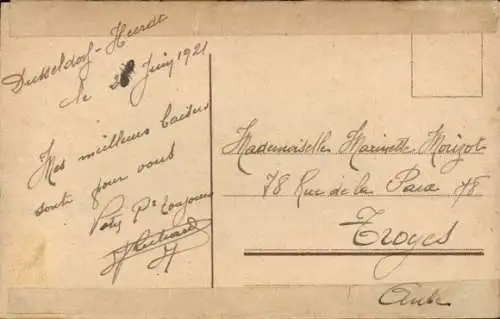 Dusseldorf-Heerdt
le Juin 1921
Mes meilleurs baisers
sont pour vous
Toujours
Mademoiselle Marinette Morizot
78 Rue de la Paix 78
Troyes
Aube